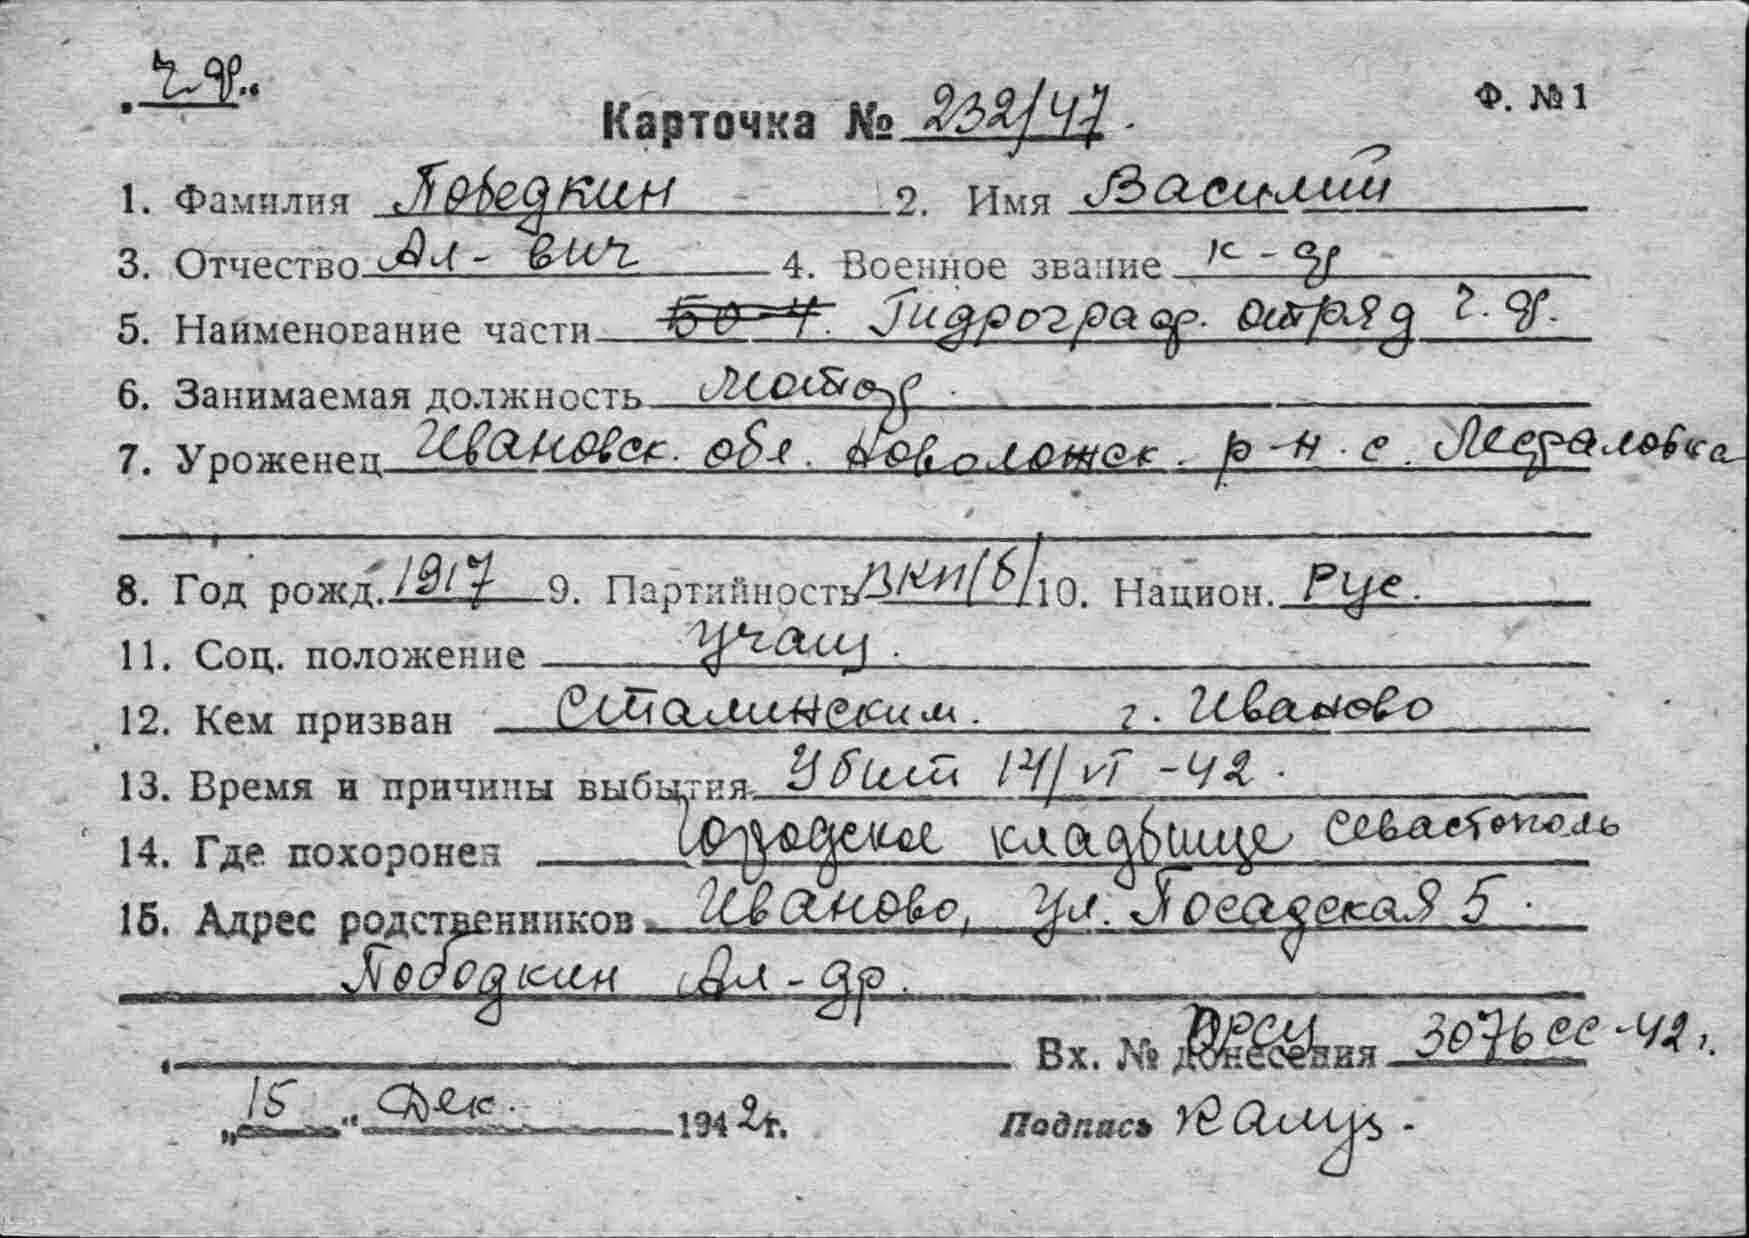 Ч.Ф.
Ф. №1
Карточка № 232/47.
1. Фамилия Победкин 2. Имя Василий
3. Отчество Ал-вич 4. Военное звание к-ф
5. Наименование части БО-4. Гидрограф. отряд Ч.Ф.
6. Занимаемая должность
7. Уроженец Ивановск. обл. р-н. с.
8. Год рожд. 1917 9. Партийность ВКП/б/ 10. Национ. Рус.
11. Соц. положение учащ.
12. Кем призван Сталинским. г. Иваново
13. Время и причины выбытия Убит 14/VI-42.
14. Где похоронен Городское кладбище Севастополь
15. Адрес родственников Иваново, ул. Посадская 5.
Ал-др.
Вх. № донесения 3076сс-42г.
„15" Дек. 1942г. Подпись